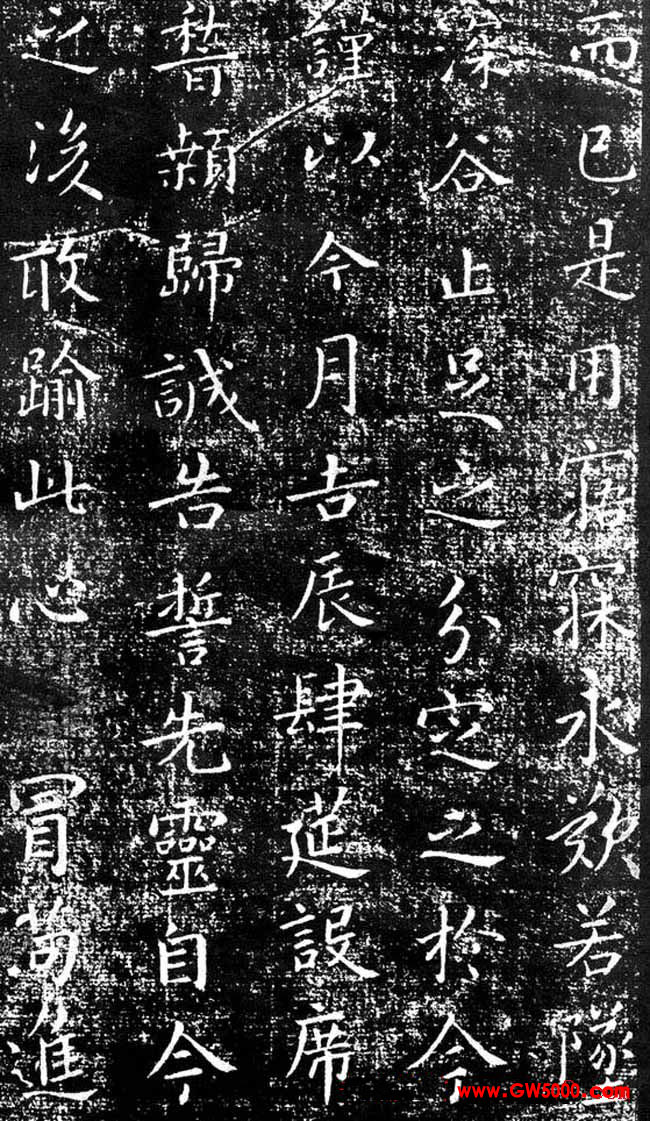 而已是用寤寐永歎若隊
深谷止足之分定之於今
謹以今月吉辰肆筵設席
稽顙歸誠告誓先靈自今
之後敢踰此心 冒苟進
www.GW5000.com